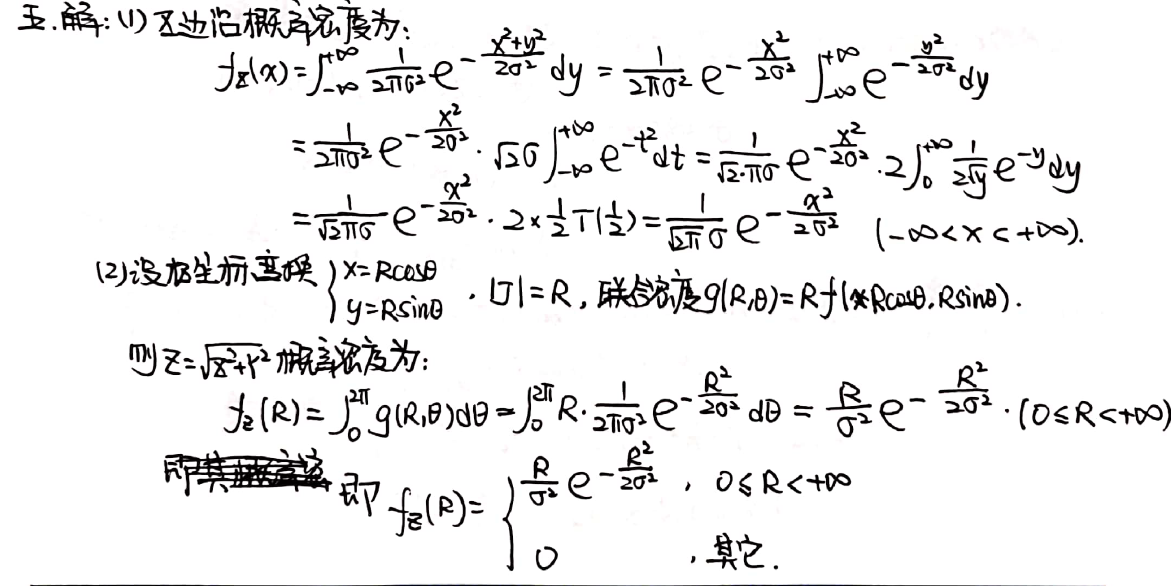 五.解:(1) X边沿概率密度为:
f_X(x)=∫_{-∞}^{+∞} \frac{1}{2πσ²} e^{-\frac{x²+y²}{2σ²}} dy = \frac{1}{2πσ²} e^{-\frac{x²}{2σ²}} ∫_{-∞}^{+∞} e^{-\frac{y²}{2σ²}} dy
= \frac{1}{2πσ²} e^{-\frac{x²}{2σ²}} · √2σ ∫_{-∞}^{+∞} e^{-t²} dt = \frac{1}{√2·πσ} e^{-\frac{x²}{2σ²}} · 2∫_{0}^{+∞} \frac{1}{2√y} e^{-y} dy
= \frac{1}{√2πσ} e^{-\frac{x²}{2σ²}} · 2×\frac{1}{2}Γ(\frac{1}{2}) = \frac{1}{\sqrt{2π}σ} e^{-\frac{x²}{2σ²}} (-∞<x<+∞).
(2)设极坐标变换 { x=Rcosθ
y=Rsinθ , |J|=R, 联合密度g(R,θ)=Rf(Rcosθ,Rsinθ).
则Z=\sqrt{X²+Y²}概率密度为:
f_Z(R)=∫_{0}^{2π} g(R,θ)dθ=∫_{0}^{2π} R·\frac{1}{2πσ²} e^{-\frac{R²}{2σ²}} dθ = \frac{R}{σ²} e^{-\frac{R²}{2σ²}}.(0≤R<+∞)
即 f_Z(R)= { \frac{R}{σ²} e^{-\frac{R²}{2σ²}} , 0≤R<+∞
0 , 其它.